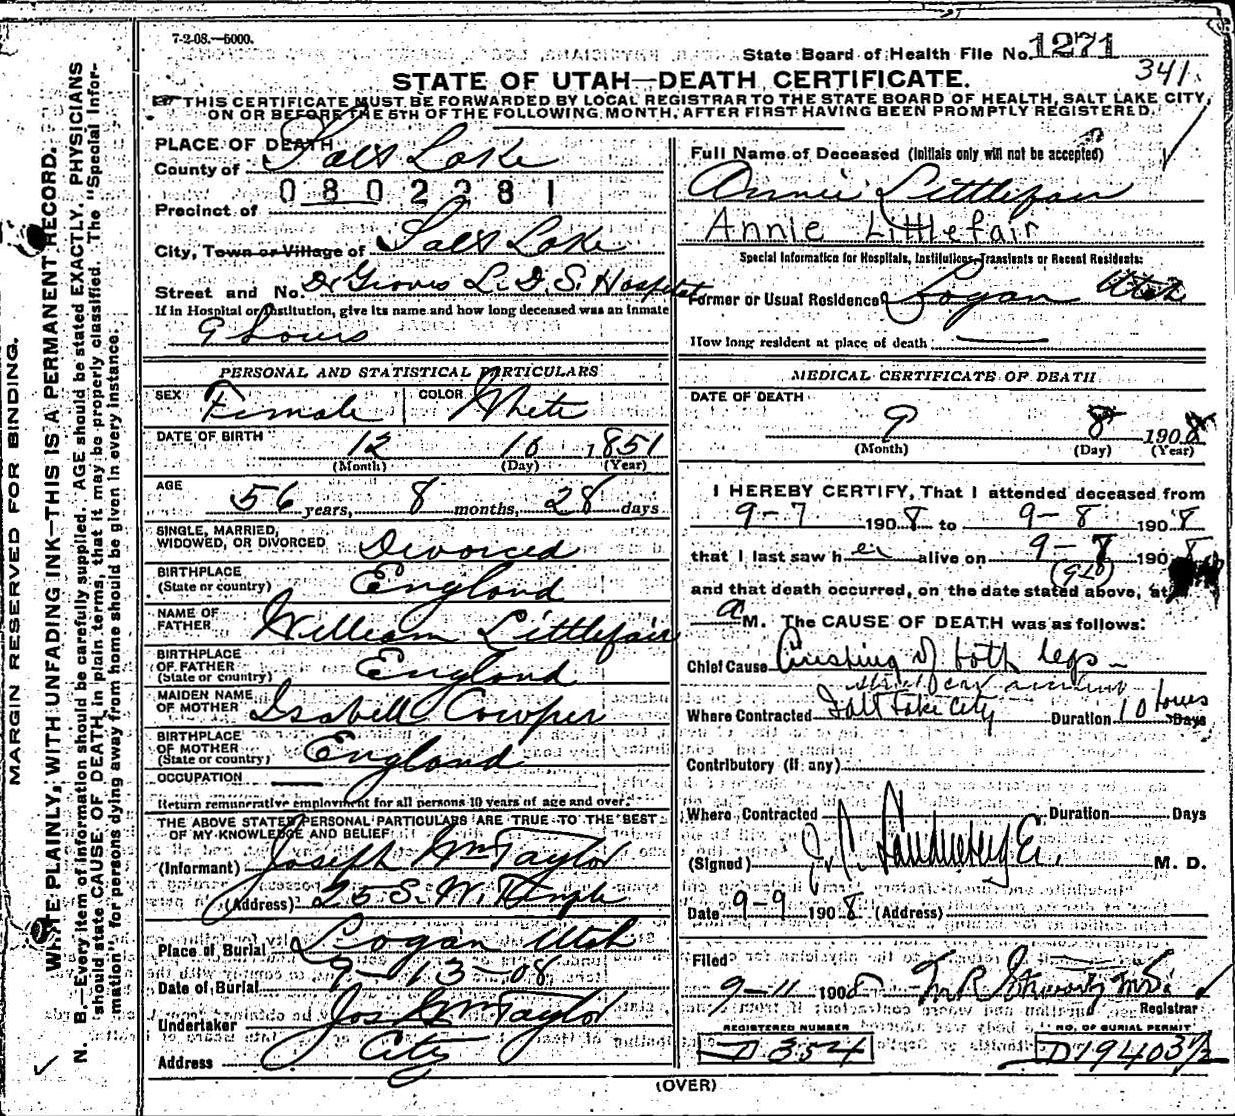 7-2-08.—5000.
State Board of Health File No. 1271
341.
STATE OF UTAH—DEATH CERTIFICATE.
THIS CERTIFICATE MUST BE FORWARDED BY LOCAL REGISTRAR TO THE STATE BOARD OF HEALTH, SALT LAKE CITY,
ON OR BEFORE THE 5TH OF THE FOLLOWING MONTH, AFTER FIRST HAVING BEEN PROMPTLY REGISTERED.
MARGIN RESERVED FOR BINDING.
WRITE PLAINLY, WITH UNFADING INK—THIS IS A PERMANENT RECORD.
N. B.—Every item of information should be carefully supplied. AGE should be stated EXACTLY. PHYSICIANS
should state CAUSE OF DEATH in plain terms, that it may be properly classified. The "Special Infor-
mation" for persons dying away from home should be given in every instance.
PLACE OF DEATH
County of Salt Lake
0802281
Precinct of
City, Town or Village of Salt Lake
Street and No. Dr Groves L. D. S. Hospital
If in Hospital or Institution, give its name and how long deceased was an inmate
9 hours
PERSONAL AND STATISTICAL PARTICULARS
SEX Female COLOR White
DATE OF BIRTH 12 10 1851
(Month) (Day) (Year)
AGE 56 years, 8 months, 28 days
SINGLE, MARRIED,
WIDOWED, OR DIVORCED Divorced
BIRTHPLACE
(State or country) England
NAME OF
FATHER William Littlefair
BIRTHPLACE
OF FATHER
(State or country) England
MAIDEN NAME
OF MOTHER Isabell Cowper
BIRTHPLACE
OF MOTHER
(State or country) England
OCCUPATION
Return remunerative employment for all persons 10 years of age and over.
THE ABOVE STATED PERSONAL PARTICULARS ARE TRUE TO THE BEST
OF MY KNOWLEDGE AND BELIEF
(Informant) Joseph Wm Taylor
(Address) 25 S. W. Temple
Place of Burial Logan Utah
Date of Burial 9-13-08
Undertaker Jos Wm Taylor
Address City
Full Name of Deceased (Initials only will not be accepted)
Annie Littlefair
Annie Littlefair
Special Information for Hospitals, Institutions, Transients or Recent Residents:
Former or Usual Residence Logan Utah
How long resident at place of death
MEDICAL CERTIFICATE OF DEATH
DATE OF DEATH
9 8 1908
(Month) (Day) (Year)
I HEREBY CERTIFY, That I attended deceased from
9-7 1908 to 9-8 1908
that I last saw her alive on 9-8 1908
and that death occurred, on the date stated above, at
a M. The CAUSE OF DEATH was as follows:
Chief Cause Crushing of both legs—
street car accident
Where Contracted Salt Lake City Duration 10 hours Days
Contributory (if any)
Where Contracted Duration Days
(Signed) M. D.
Date 9-9 1908 (Address)
Filed
9-11 1908
Registrar
REGISTERED NUMBER NO. OF BURIAL PERMIT
D 354 D 19403 1/2
(OVER)